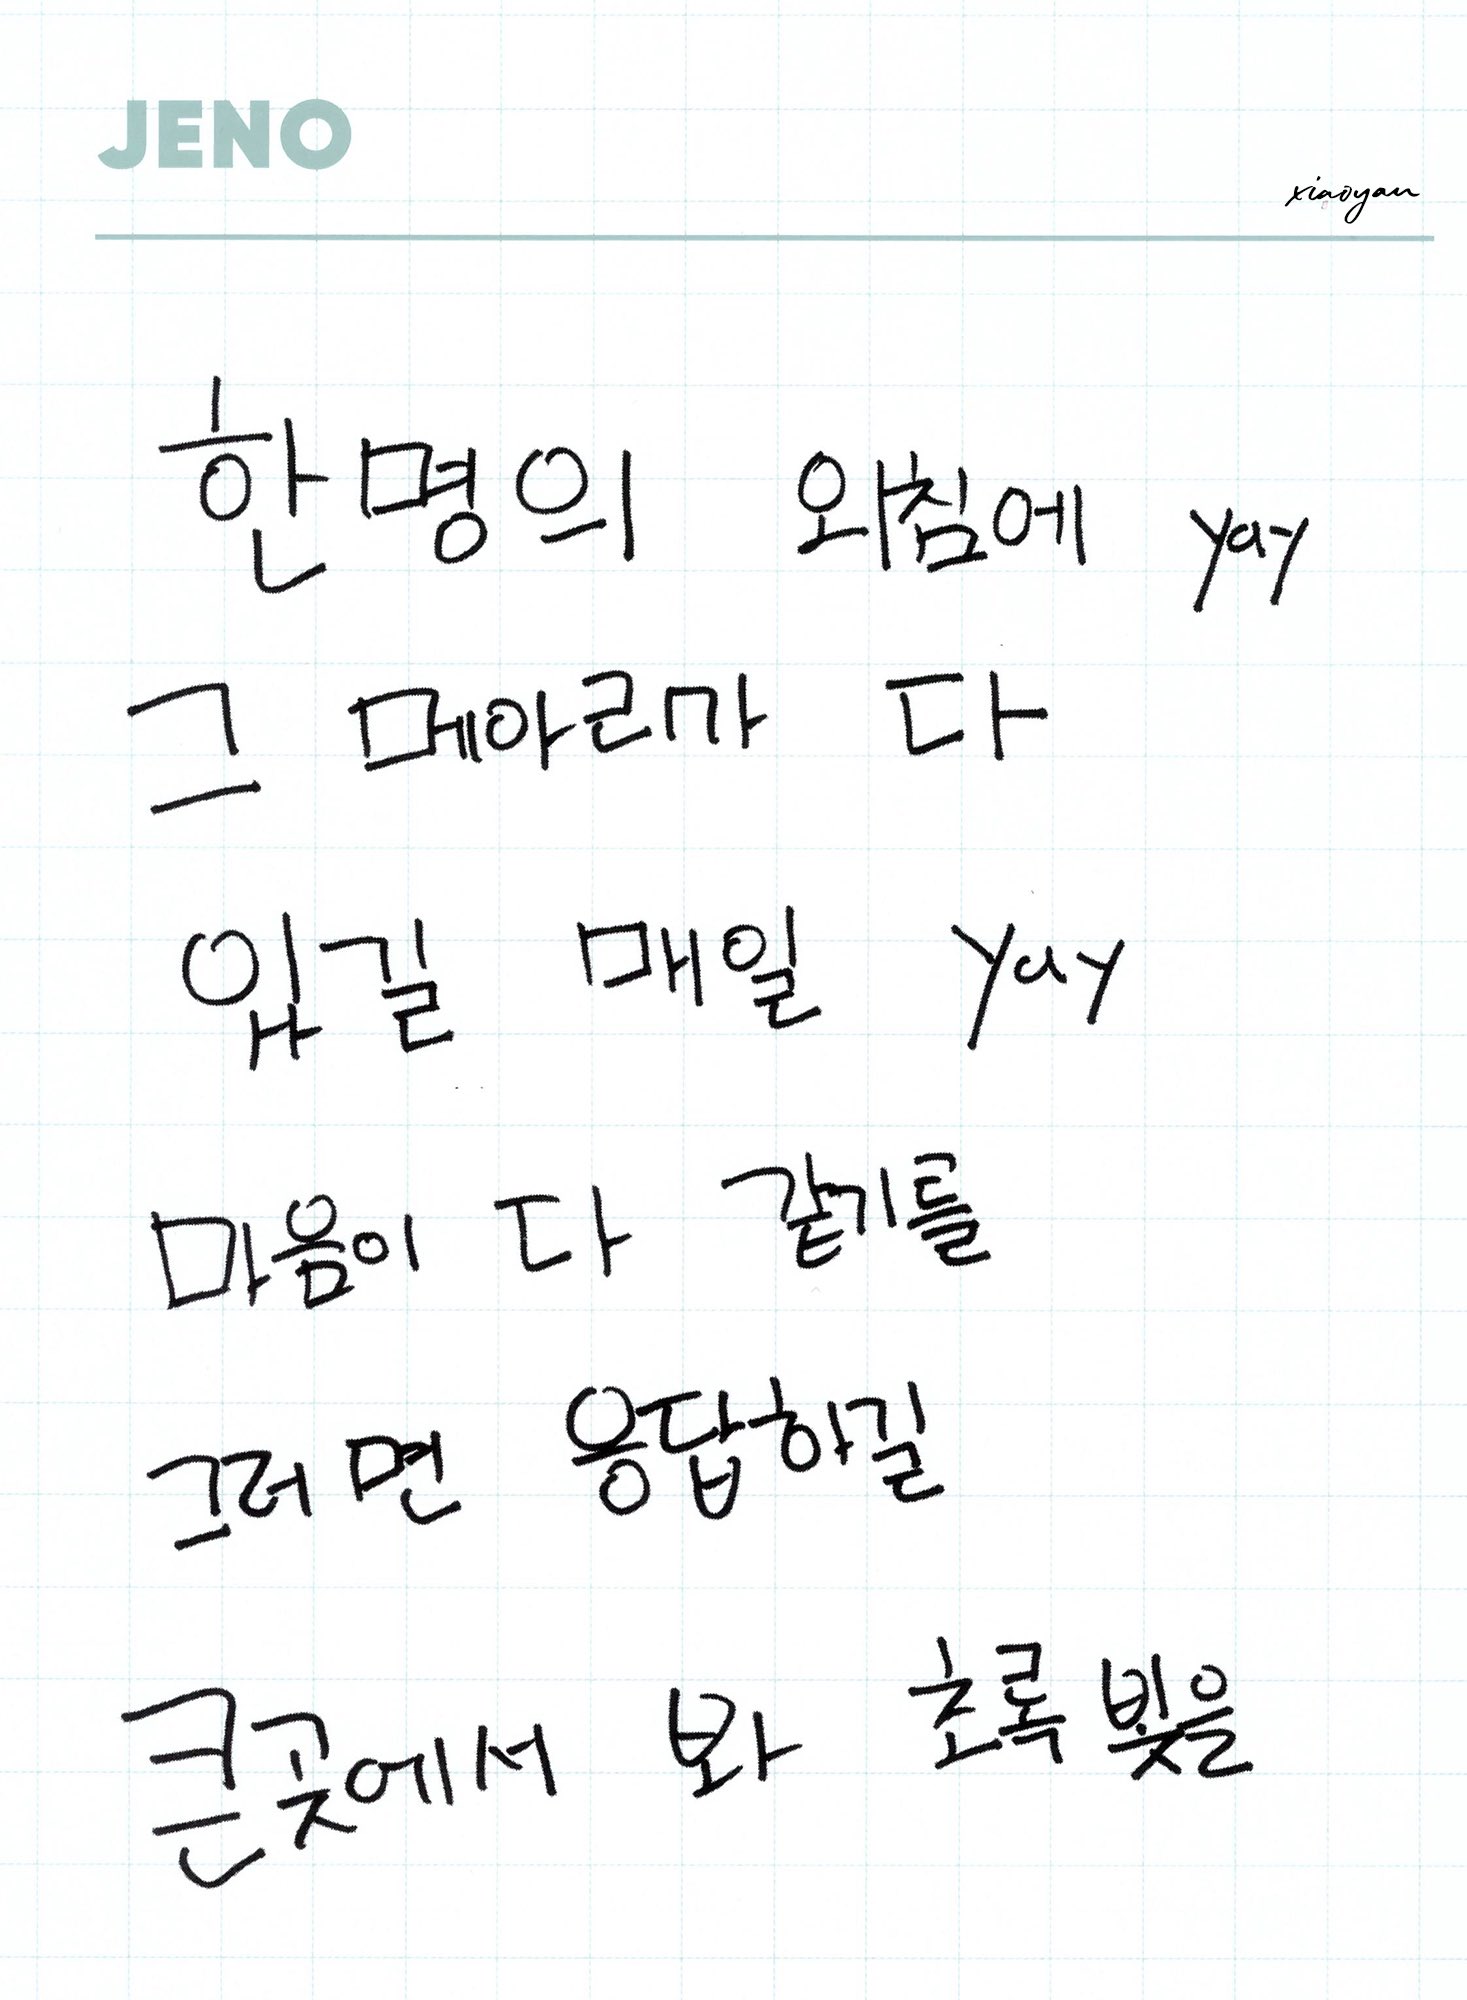 JENO
xiaoyan
한명의 외침에 yay
그 메아리가 다
있길 매일 yay
마음이 다 같기를
그러면 응답하길
큰곳에서 봐 초록빛을